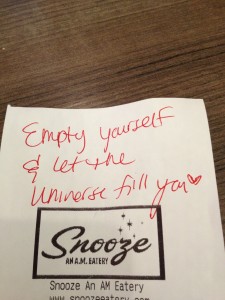 Empty yourself
& let the
Universe fill you
Snooze
AN A.M. EATERY
Snooze An AM Eatery
www.snoozeeatery.com